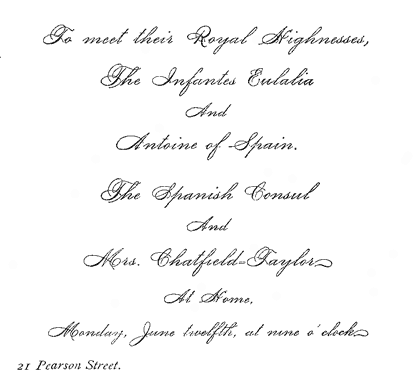 To meet their Royal Highnesses,
The Infantes Eulalia
And
Antoine of Spain.
The Spanish Consul
And
Mrs. Chatfield-Taylor
At Home,
Monday, June twelfth, at nine o'clock
21 Pearson Street.